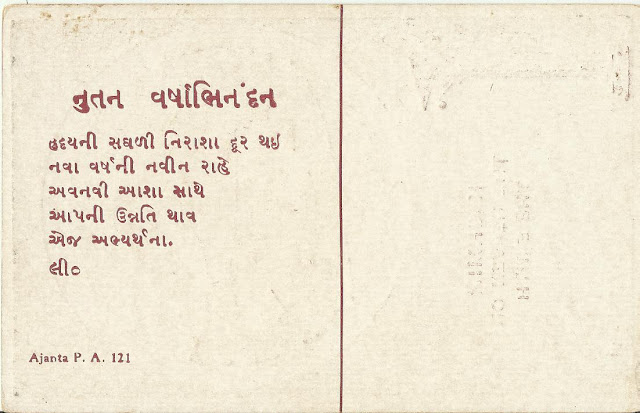 નુતન વર્ષાભિનંદન
હૃદયની સઘળી નિરાશા દૂર થઇ
નવા વર્ષની નવીન રાહે
અવનવી આશા સાથે
આપની ઉન્નતિ થાવ
એજ અભ્યર્થના.
લી૦
Ajanta P. A. 121